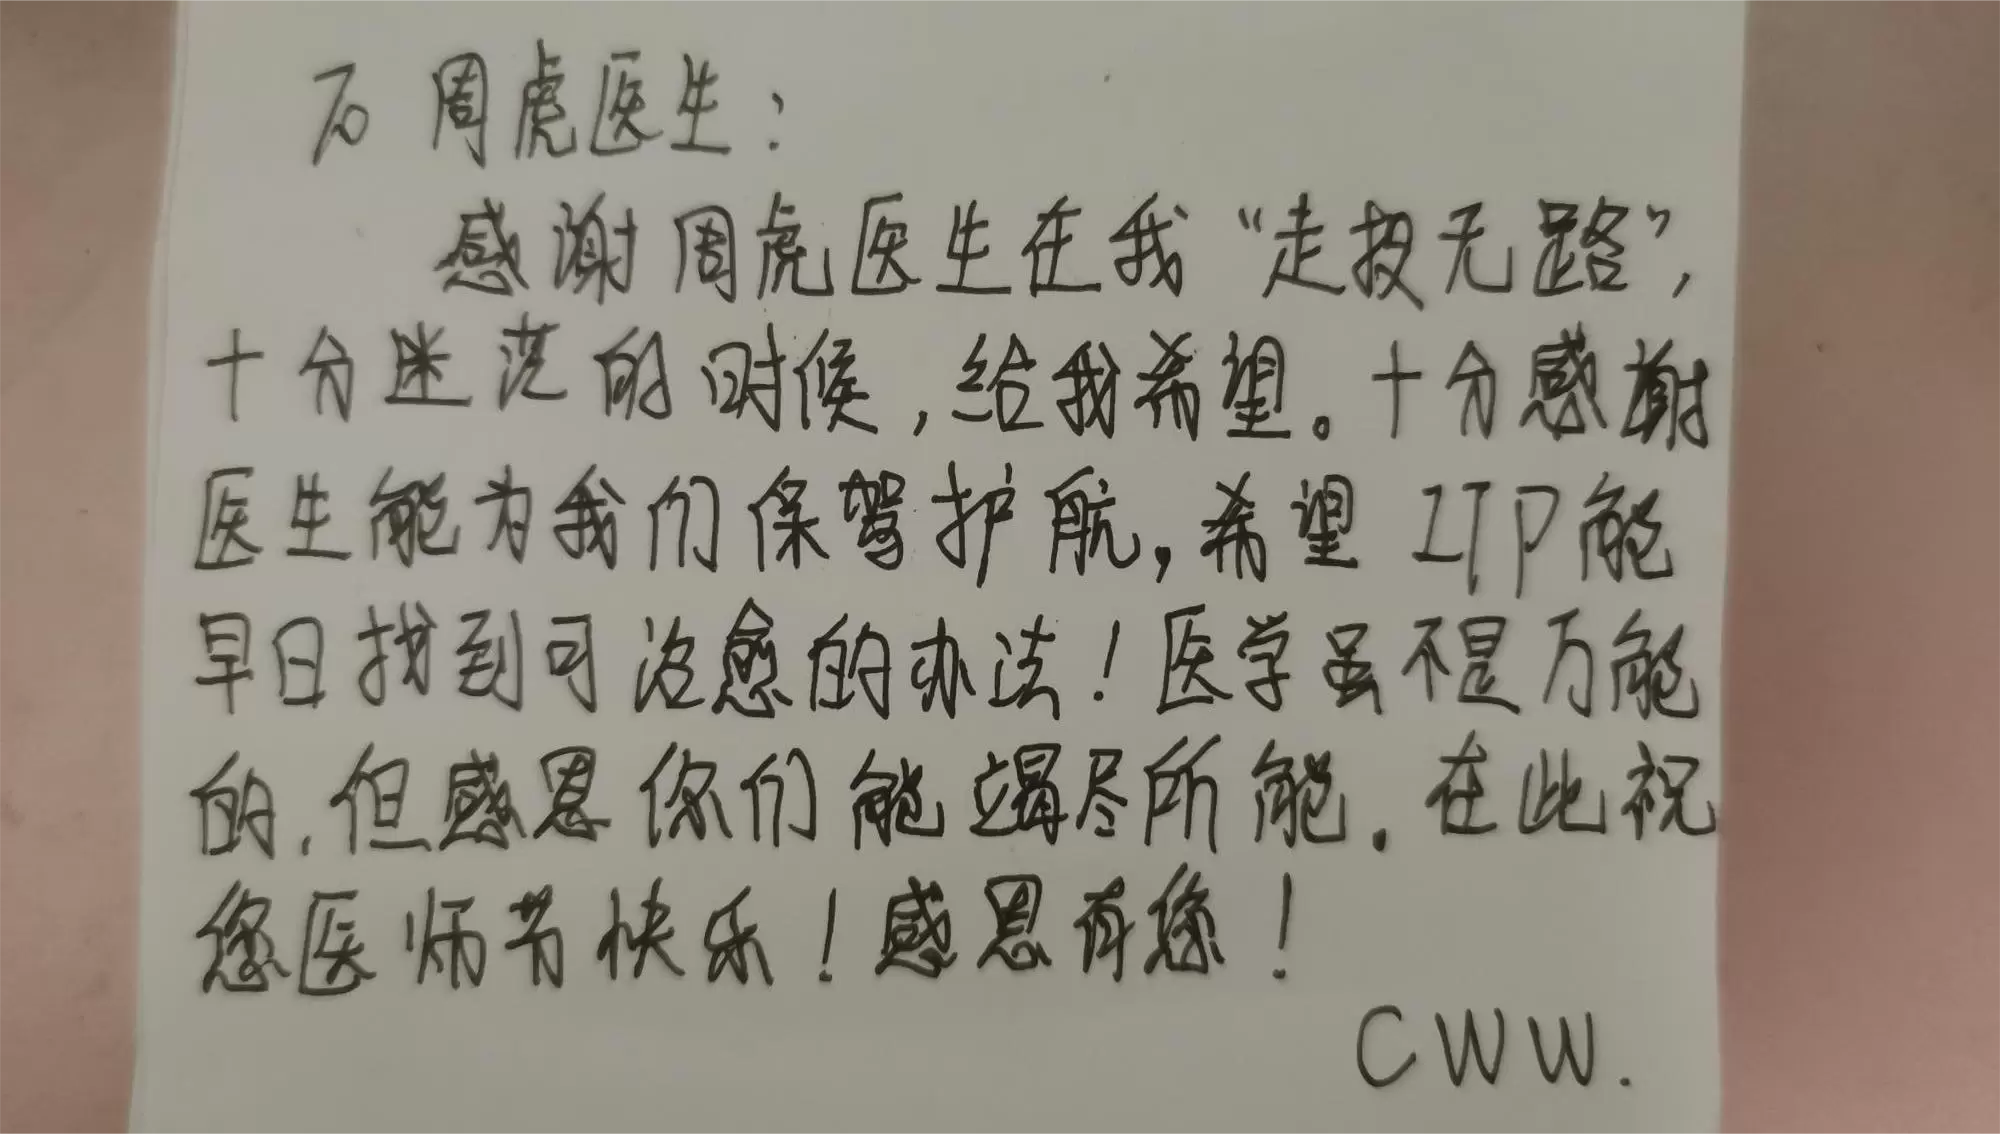 石周虎医生：
感谢周虎医生在我“走投无路”，
十分迷茫的时候，给我希望。十分感谢
医生能为我们保驾护航，希望ITP能
早日找到可治愈的办法！医学虽不是万能
的，但感恩你们能竭尽所能。在此祝
您医师节快乐！感恩有您！
CWW.